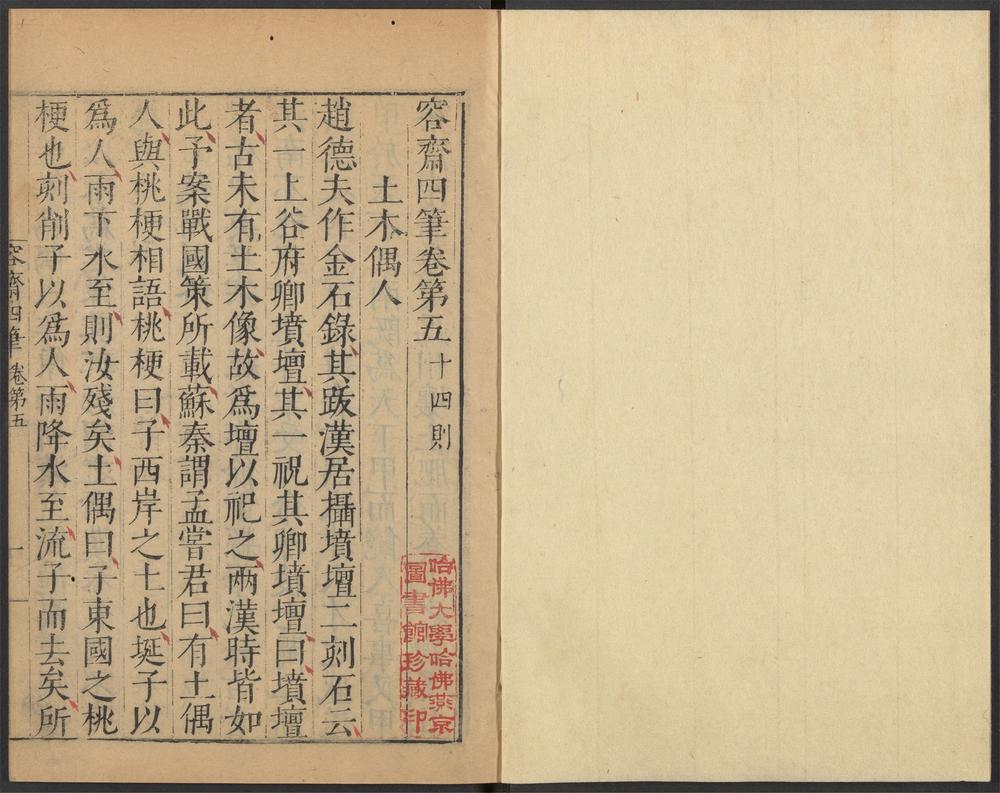 容齋四筆卷第五十四則
土木偶人
趙德夫作金石錄其跋漢居攝墳壇二刻石云
其一上谷府卿墳壇其一祝其卿墳壇曰墳壇
者古未有土木像故爲壇以祀之兩漢時皆如
此予案戰國策所載蘇秦謂孟嘗君曰有土偶
人與桃梗相語桃梗曰子西岸之土也埏子以
爲人雨下水至則汝殘矣土偶曰子東國之桃
梗也刻削子以爲人雨降水至流子而去矣所
容齋四筆 卷第五 一
哈佛大學哈佛燕京
圖書館珍藏印